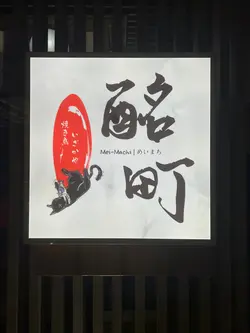 酩町
Mei-Machi | めいまち
いざかや
焼き鳥